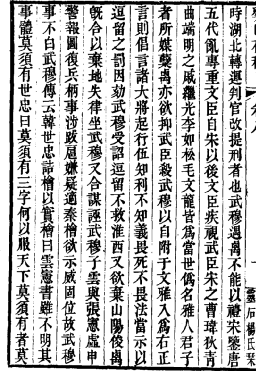 時湖北轉運判官改提刑者也武穆遇禽不能以禮宋鑒唐
五代亂專重文臣自宋以後文臣疾視武臣宋之曹瑋狄青
曲端明之戚繼光李如松毛文龍皆爲當世偽名雅人君子
者所媒孽禽亦欲抑武臣殺武穆以自附于文雅入爲右正
言則倡言諸大將起行伍知利不知義畏死不畏法當示以
逗留之罰因劾武穆受詔逗留不救淮西又欲棄山陽俊禽
旣合以棄地失律坐武穆又合謀誣武穆子雲與張憲虛申
警報圖復兵柄事涉跋扈嫌疑適秦檜欲示威固位故武穆
事不白武穆傳云韓世忠詰檜以實檜曰雲憲書雖不明其
事體莫須有世忠曰莫須有三字何以服天下莫須有者莫